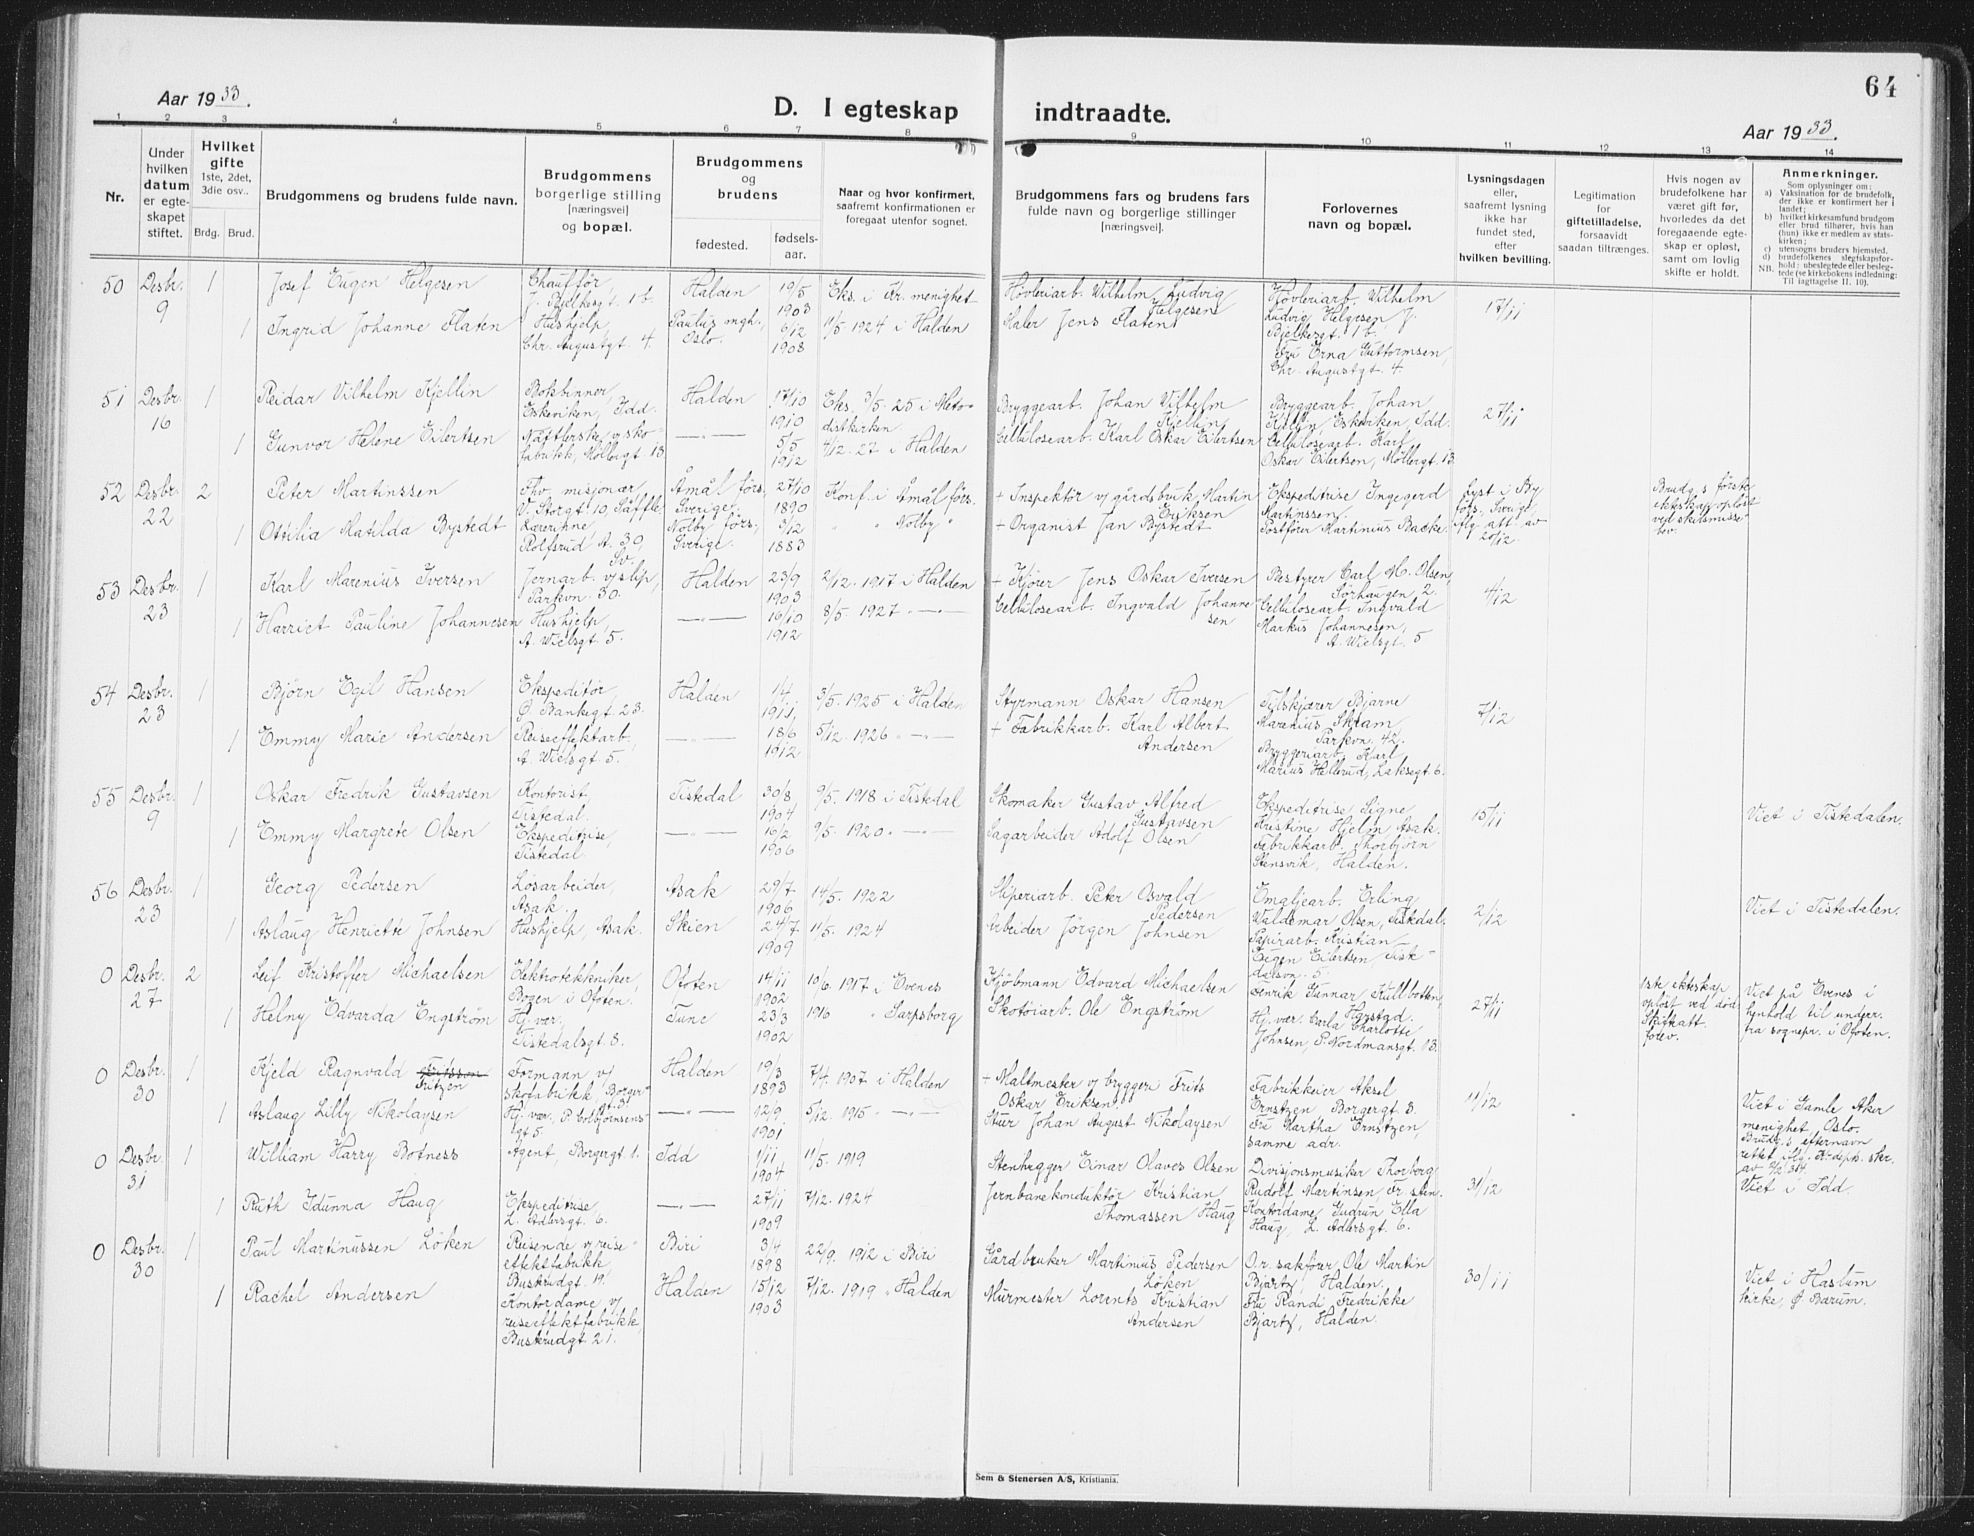 64
Aar 1933.
D. I egteskap indtraadte.
Aar 1933.
1 2 3 4 5 6 7 8 9 10 11 12 13 14
Nr.
Under hvilken datum er egteskapet stiftet.
Hvilket gifte 1ste, 2det, 3die osv..
Brdg. Brud.
Brudgommens og brudens fulde navn.
Brudgommens borgerlige stilling [næringsvei] og bopæl.
Brudgommens og brudens
fødested. fødsels-aar.
Naar og hvor konfirmert, saafremt konfirmationen er foregaat utenfor sognet.
Brudgommens fars og brudens fars fulde navn og borgerlige stillinger [næringsvei].
Forlovernes navn og bopæl.
Lysningsdagen eller, saafremt lysning ikke har fundet sted, efter hvilken bevilling.
Legitimation for giftetilladelse, forsaavidt saadan tiltrænges.
Hvis nogen av brudefolkene har været gift før, hvorledes da det foregaaende egteskap er opløst, samt om lovlig skifte er holdt.
Anmerkninger.
Som oplysninger om:
a) Vaksination for de brudefolk, der ikke er konfirmert her i landet;
b) hvilket kirkesamfund brudgom eller brud tilhører, hvis han (hun) ikke er medlem av statskirken;
c) utensogns bruders hjemsted,
d) brudefolkenes slegtskapsforhold: ubeslegtede eller beslegtede (se kirkebokens indledning:
NB. Til iagttagelse II. 10).
50 Desbr. 9 1 Josef Eugen Helgesen Chauffør, J. Bjelkesgt. 1 b. Halden 19/5 1903 Eks. i Fr. menighet Høvleriarb. Wilhelm Ludvig Helgesen Høvleriarb. Wilhelm Ludvig Helgesen, J. Bjelkesgt. 1 b. 17/11
1 Ingrid Johanne Flaten Hushjelp, Chr. Augustgt. 4. Paulus mgh., Oslo. 6/12 1908 11/5 1924 i Halden Maler Jens Flaten Fru Erna Guttormsen, Chr. Augustgt. 4
51 Desbr. 16 1 Reidar Vilhelm Kjellin Bokbinner, Eskeviken, Idd. Halden 17/10 1910 Eks. 3/5. 25 i Metodistkirken. Bryggearb. Johan Vilhelm Kjellin Bryggearb. Johan Kjellin, Eskeviken, Idd. 27/11
1 Gunvor Helene Eilertsen Nåtlerske v/ skofabrikk, Møllergt. 13. —"— 5/5 1912 4/12. 27 i Halden Cellulosearb. Karl Oskar Eilertsen Cellulosearb. Karl Oskar Eilertsen, Møllergt. 13
52 Desbr. 22 2 Peter Martinssen Fhv. misjonær, V. Storgt. 10, Säffle Åmål förs., Sverige. 27/10 1890 Konf. i Åmål förs. + Inspektør v/ gårdsbruk, Martin Eriksen Ekspeditrise Ingegerd Martinssen Lyst i By förs., Sverige, iflg. att. av 20/12. Brudg.s første ekteskap opløst ved skilsmissebev.
1 Ottilia Matilda Bystedt Lærerinne, Rolfsrud, A. 30, Sv. Nolby förs., Sverige. 5/2 1883 " " Nolby " + Organist Jan Bystedt Postfører Martinius Backe.
53 Desbr. 23 1 Karl Marenius Iversen Jernarb. v/ slip, Parkvn. 30. Halden 23/9 1903 2/12. 1917 i Halden + Kjører Jens Oskar Iversen Bestyrer Carl M. Olsen, Sørhaugen 2. 4/12
1 Harriet Pauline Johannesen Hushjelp, A. Wielsgt. 5. —"— 16/10 1912 8/5. 1927 —"— Cellulosearb. Ingvald Johannesen Cellulosearb. Ingvald Markus Johannesen, A. Wielsgt. 5
54 Desbr. 23 1 Bjørn Egil Hansen Ekspeditør, Ø. Bankegt. 23. Halden 1/4 1911, 3/5. 1925 i Halden Styrmann Oskar Hansen Tilskjærer Bjarne Marenius Skram, Parkvn. 42. 7/12
1 Emmy Marie Andersen Reiseeffektarb., A. Wielsgt. 5. —"— 18/6 1912 5/12. 1926 —"— + Fabrikkarb. Karl Albert Andersen Bryggeriarb. Karl Marius Hellerud, Laksegt. 6.
55 Desbr. 9 1 Oskar Fredrik Gustavsen Kontorist, Tistedal. Tistedal 30/8 1904 9/5. 1918 i Tistedal Skomaker Gustav Alfred Gustavsen Ekspeditrise Signe Kristine Hjelm, Asak. 15/11 Viet i Tistedalen.
1 Emmy Margrete Olsen Ekspeditrise, Tistedal. —"— 16/2 1906 9/5. 1920 —"— Sagarbeider Adolf Olsen Fabrikkarb. Thorbjørn Stensvik, Halden.
56 Desbr. 23 1 Georg Pedersen Løsarbeider, Asak. Asak 29/7 1906 14/5. 1922 Sliperiarb. Peter Osvald Pedersen Emaljearb. Erling Waldemar Olsen, Tistedal. 2/12 Viet i Tistedalen.
1 Aslaug Henriette Johnsen Hushjelp, Asak. Skien 24/7 1909 11/5. 1924 Arbeider Jørgen Johnsen Papirarb. Kristian Eugen Eilertsen, Tistedalsvn. 5.
0 Desbr. 27 2 Leif Kristoffer Michaelsen Elektrotekkniker, Bogen i Ofoten. Ofoten 14/11 1902 10/6. 1917 i Evenes Kjøbmann Edvard Michaelsen Henrik Gunnar Kullbotten, Harstad. 27/11 1ste ekteskap opløst ved død. Skifteatt. forev. Viet på Evenes i henhold til underr. fra sognepr. i Ofoten.
1 Helny Edvarda Engström Hj. vær., Tistedalsgt. 8. Tune 23/3 1902 1916 " Sarpsborg Skotøiarb. Ole Engström Hj. vær. Carla Charlotte Johnsen, P. Nordmansgt. 13.
0 Desbr. 30 1 Kjeld Ragnvald Fritzen Formann v/ skofabrikk, Borgergt. 3. Halden 19/3 1893 7/4. 1907 i Halden + Maltmester v/ bryggeri Frits Oskar Eriksen. Fabrikkeier Aksel Ernstzen, Borgergt. 3. 11/12 Viet i Gamle Aker menighet, Oslo. Brudg.s efternavn rettet iflg. K. deps. skr. av
1 Aslaug Lilly Nikolaysen Hj. vær., P. Colbjørnsensgt 5. —"— 12/9 1901 5/12. 1915 —"— Stuer Johan August Nikolaysen Fru Martha Ernstzen, samme adr.
0 Desbr. 31 1 William Harry Botness Agent, Borgergt. 1. Idd 1/11 1904 11/5. 1919 Stenhugger Einar Olaves Olsen Divisjonsmusiker Thorberg Rudolf Martinsen, Fr. sten. 31/12 Viet i Idd.
1 Ruth Idunna Haug Ekspeditrise, L. Adlersgt. 6. —"— 27/11 1909 7/12. 1924 Jernbanekonduktør Kristian Thomassen Haug Kontordame Gudrun Ella Haug, L. Adlersgt. 6.
0 Desbr. 30 1 Paul Martinussen Løken Reisende v/ reiseeffektfabrikk, Buskrudgt. 19. Biri 3/4 1898 22/9. 1912 i Biri Gårdbruker Martinius Pedersen Løken O.r. sakfører Ole Martin Bjartz, Halden. 30/11 Viet i Haslum kirke, Ø. Bærum.
1 Rachel Andersen Kontordame v/ reiseeffektfabrikk, Buskrudgt. 21. Halden 15/12 1903 7/12. 1919 " Halden Murmester Lorents Kristian Andersen Fru Randi Fredrikke Bjartz, Halden.
Sem & Stenersen A/S, Kristiania.